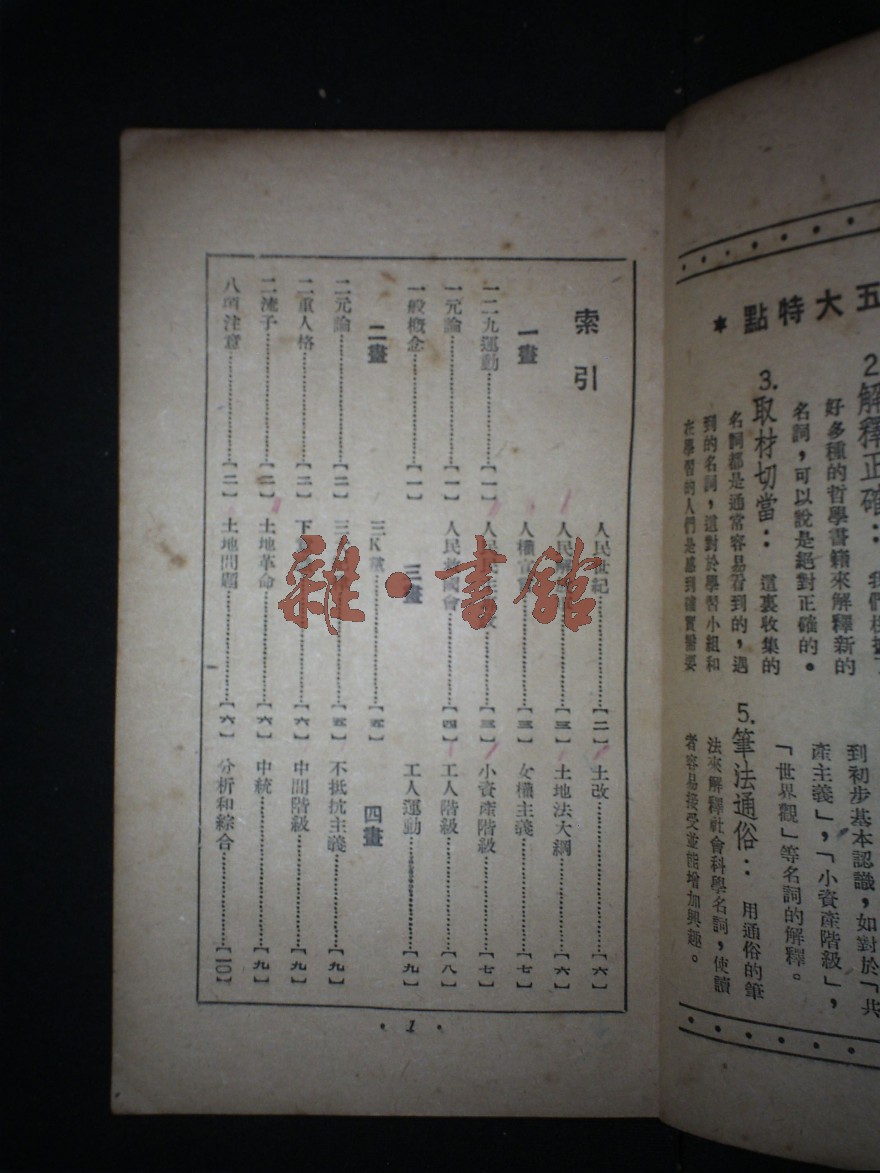 五大特點 ✱
2.解釋正確：
好多種的哲學書籍來解釋新的
名詞，可以說是絕對正確的。
3.取材切當： 這裏收集的
名詞都是通常容易看到的，遇
到的名詞，這對於學習小組和
在學習的人們是感到確實需要
到初步基本認識，如對於「共
產主義」，「小資產階級」，
「世界觀」等名詞的解釋。
5.筆法通俗： 用通俗的筆
法來解釋社會科學名詞，使讀
者容易接受並能增加興趣。
索引
一畫
一二九運動……【一】
一元論……【一】
一般概念……【一】
二畫
二元論……【二】
二重人格……【二】
二流子……【二】
八項注意……【二】
人民世紀……【二】
人民……【三】
人權宣……【三】
人民……【三】
人民救國會……【四】
三畫
三K黨……【五】
三……【五】
下……【六】
土地革命……【六】
土地問題……【六】
土改……【六】
土地法大綱……【六】
女權主義……【七】
小資產階級……【七】
工人階級……【八】
工人運動……【九】
四畫
不抵抗主義……【九】
中間階級……【九】
中統……【九】
分析和綜合……【10】
·1·
雜·書館